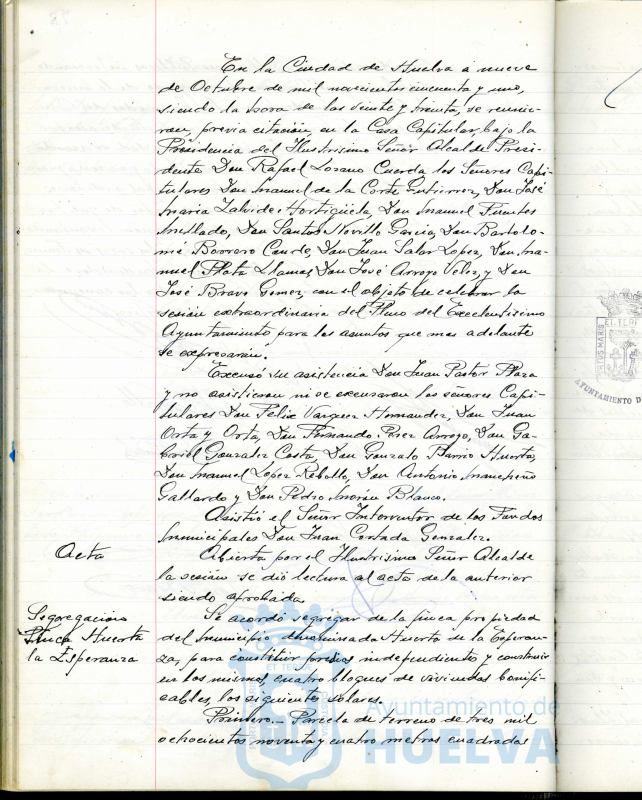 En la Ciudad de Huelva a nueve
de Octubre de mil novecientos cincuenta y uno,
siendo la hora de las veinte y treinta, se reunie-
ron, previa citación, en la Casa Capitular, bajo la
Presidencia del Ilustrisimo Señor Alcalde Presi-
dente Don Rafael Lozano Cuerda los Señores Capi-
tulares Don Manuel de la Corte Gutierrez, Don José
Maria Zalvide Hortigüela, Don Manuel Fuentes
Mellado, Don Santos Novillo Garcia, Don Bartolo-
mé Borrero Conde, Don Juan Salar Lopez, Don Ma-
nuel Plata Llamas, Don José Arroyo Velez, y Don
José Bravo Gomez, con el objeto de celebrar la
sesión extraordinaria del Pleno del Excelentisimo
Ayuntamiento para los asuntos que mas adelante
se expresaran.
Excusó su asistencia Don Juan Pastor Plaza
y no asistieron ni se excusaron los señores Capi-
tulares Don Felix Vazquez Hernandez, Don Juan
Orta y Orta, Don Fernando Perez Arroyo, Don Ga-
briel Gonzalez Costa, Don Gonzalo Barrio Huerta,
Don Manuel Lopez Rebollo, Don Antonio
Gallardo y Don Pedro Morón Blanco.
Asistió el Señor Interventor de los Fondos
Municipales Don Juan Cortada Gonzalez.
Acta
Abierta por el Ilustrisimo Señor Alcalde
la sesión se dió lectura al acta de la anterior
siendo aprobada.
Segregacion
Finca Huerta
la Esperanza
Se acordó segregar de la finca propiedad
del Municipio denominada Huerta de la Esperan-
za, para constituir predios independientes y construir
en los mismos cuatro bloques de viviendas bonifi-
cables, los siguientes solares.
Primero.- Parcela de terreno de tres mil
ochocientos noventa y cuatro metros cuadrados
Ayuntamiento de
HUELVA
AYUNTAMIENTO D